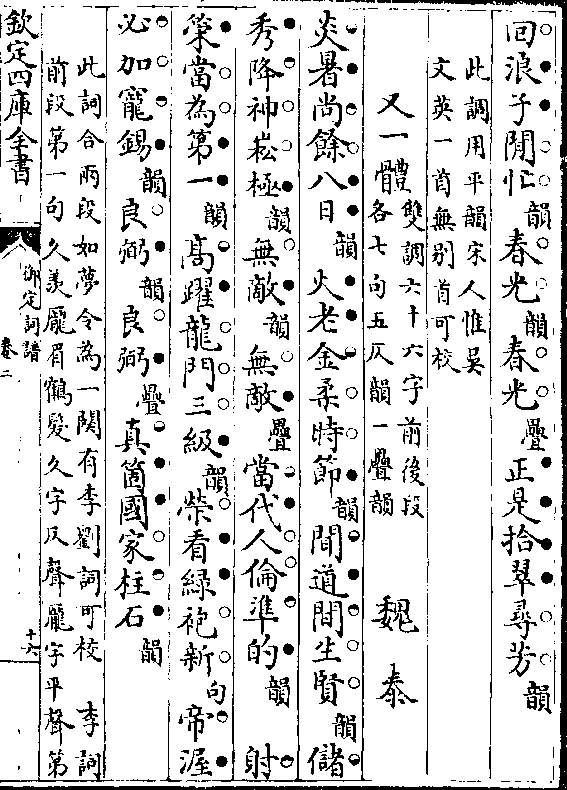 回浪子閒忙韻春光韻春光疊正是拾翠尋芳韻
此調用平韻宋人惟吳
文英一首無别首可校
又一體雙調六十六字前後段
各七句五仄韻一疊韻 魏泰
炎暑尚餘八日韻火老金柔時節韻間道間生賢韻儲
秀降神崧極韻無敵韻無敵疊當代人倫準的韻 射
策當為第一韻高躍龍門三級韻榮看綠袍新句帝渥
必加寵錫韻良弼韻良弼疊真箇國家柱石韻
此詞合兩段如夢令為一闋有李劉詞可校 李詞
前段第一句久羨龎眉鶴髮久字仄聲龎字平聲第
欽定四庫全書
御定詞譜
卷二
十六